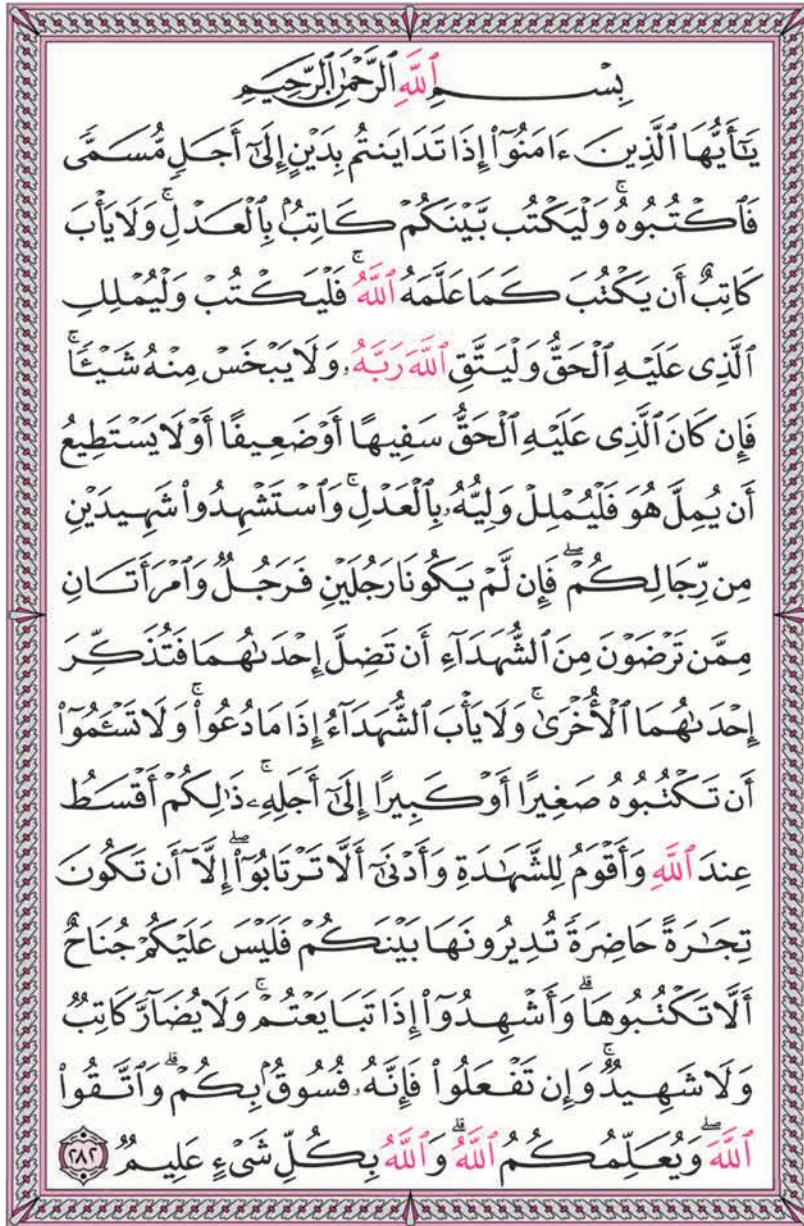 بِسْمِ ٱللَّهِ ٱلرَّحْمَٰنِ ٱلرَّحِيمِ
يَٰٓأَيُّهَا ٱلَّذِينَ ءَامَنُوٓا۟ إِذَا تَدَايَنتُم بِدَيْنٍ إِلَىٰٓ أَجَلٍ مُّسَمًّى
فَٱكْتُبُوهُ ۚ وَلْيَكْتُب بَّيْنَكُمْ كَاتِبٌۢ بِٱلْعَدْلِ ۚ وَلَا يَأْبَ
كَاتِبٌ أَن يَكْتُبَ كَمَا عَلَّمَهُ ٱللَّهُ ۚ فَلْيَكْتُبْ وَلْيُمْلِلِ
ٱلَّذِى عَلَيْهِ ٱلْحَقُّ وَلْيَتَّقِ ٱللَّهَ رَبَّهُۥ وَلَا يَبْخَسْ مِنْهُ شَيْـًٔا ۚ
فَإِن كَانَ ٱلَّذِى عَلَيْهِ ٱلْحَقُّ سَفِيهًا أَوْ ضَعِيفًا أَوْ لَا يَسْتَطِيعُ
أَن يُمِلَّ هُوَ فَلْيُمْلِلْ وَلِيُّهُۥ بِٱلْعَدْلِ ۚ وَٱسْتَشْهِدُوا۟ شَهِيدَيْنِ
مِن رِّجَالِكُمْ ۖ فَإِن لَّمْ يَكُونَا رَجُلَيْنِ فَرَجُلٌ وَٱمْرَأَتَانِ
مِمَّن تَرْضَوْنَ مِنَ ٱلشُّهَدَآءِ أَن تَضِلَّ إِحْدَىٰهُمَا فَتُذَكِّرَ
إِحْدَىٰهُمَا ٱلْأُخْرَىٰ ۚ وَلَا يَأْبَ ٱلشُّهَدَآءُ إِذَا مَا دُعُوا۟ ۚ وَلَا تَسْـَٔمُوٓا۟
أَن تَكْتُبُوهُ صَغِيرًا أَوْ كَبِيرًا إِلَىٰٓ أَجَلِهِۦ ۚ ذَٰلِكُمْ أَقْسَطُ
عِندَ ٱللَّهِ وَأَقْوَمُ لِلشَّهَٰدَةِ وَأَدْنَىٰٓ أَلَّا تَرْتَابُوٓا۟ ۖ إِلَّآ أَن تَكُونَ
تِجَٰرَةً حَاضِرَةً تُدِيرُونَهَا بَيْنَكُمْ فَلَيْسَ عَلَيْكُمْ جُنَاحٌ
أَلَّا تَكْتُبُوهَا ۗ وَأَشْهِدُوٓا۟ إِذَا تَبَايَعْتُمْ ۚ وَلَا يُضَآرَّ كَاتِبٌ
وَلَا شَهِيدٌ ۚ وَإِن تَفْعَلُوا۟ فَإِنَّهُۥ فُسُوقٌۢ بِكُمْ ۗ وَٱتَّقُوا۟
ٱللَّهَ ۖ وَيُعَلِّمُكُمُ ٱللَّهُ ۗ وَٱللَّهُ بِكُلِّ شَىْءٍ عَلِيمٌ ٢٨٢